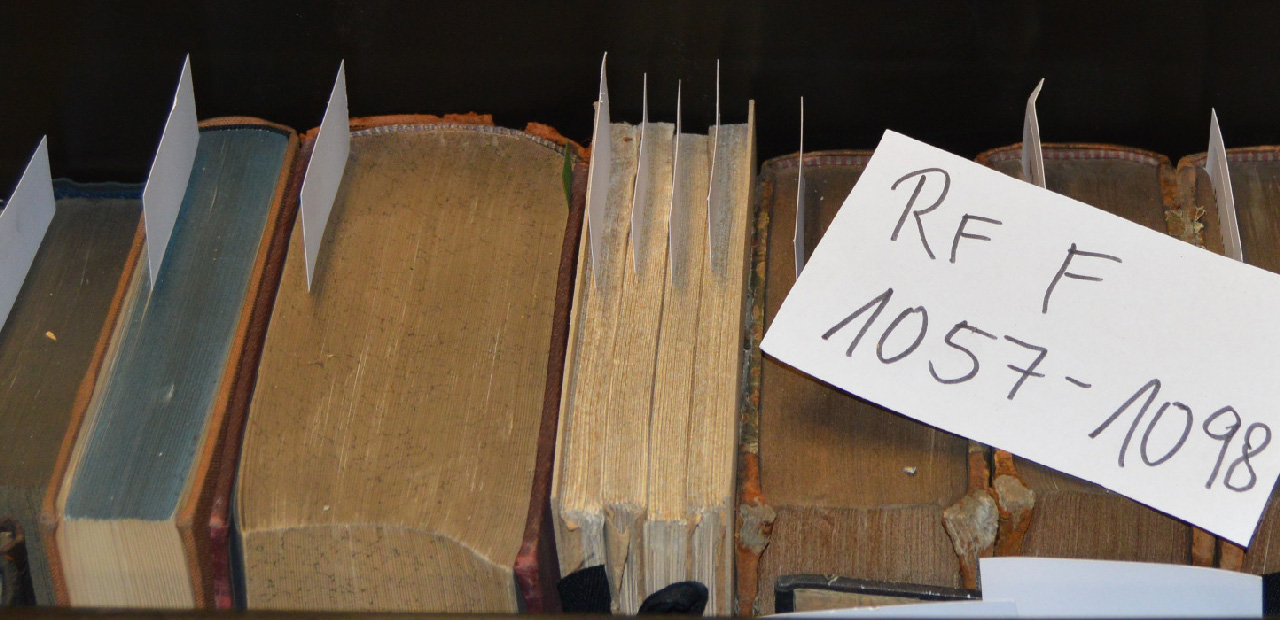 RF F
1057-1098